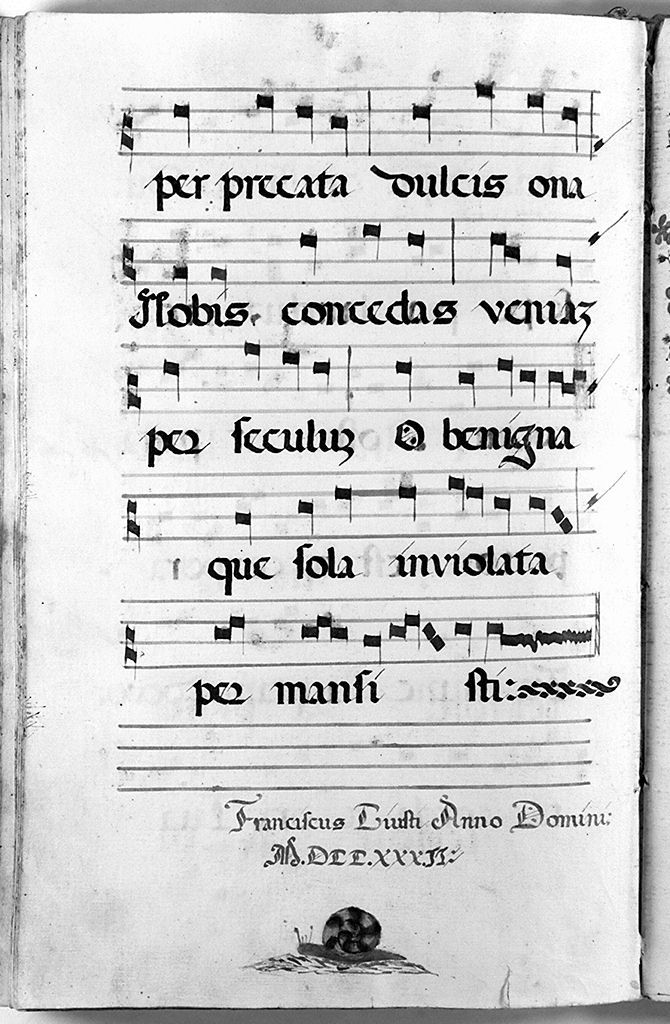 per precata dulcis ona
Nobis concedas veniaʒ
per seculuʒ O benigna
que sola inviolata.
per mansi sti:
Franciscus Giusti Anno Domini:
M.DCC.XXXII: